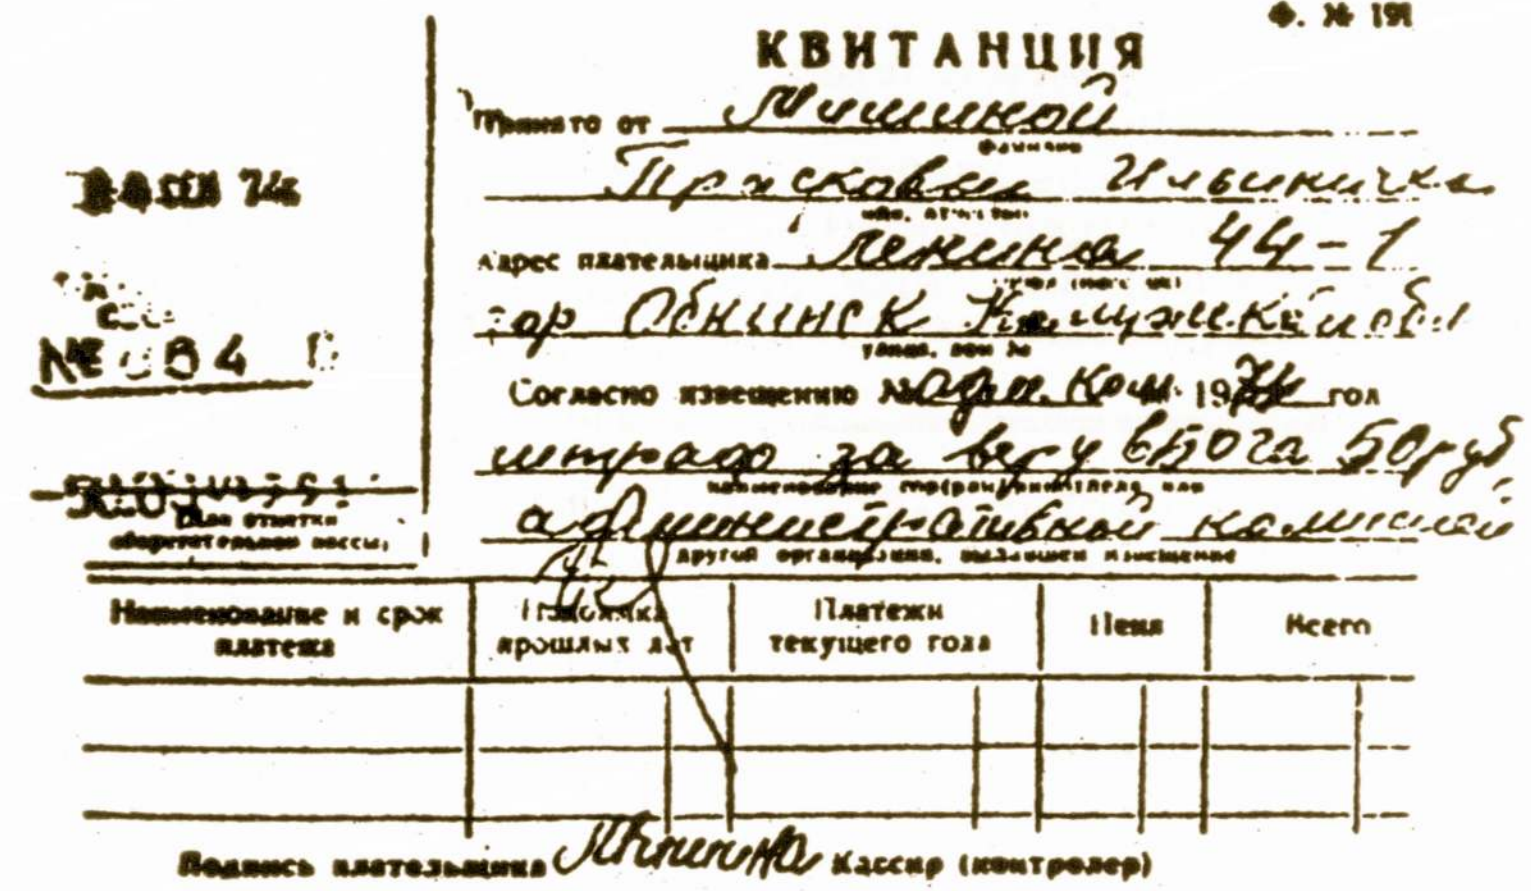 Ф. № 191
КВИТАНЦИЯ
Принято от Мишиной
фамилия
Прасковьи Ильиничны
имя, отчество
Адрес плательщика Ленина 44-1
гор Обнинск Калужской обл
улица, дом №
Согласно извещению № адм. Ком 1974 год
штраф за веру в Бога 50 руб
административной комиссией
другой организации, выдавшей извещение
№ 84
Для отметки
сберегательной кассы
Наименование и срок платежа
Недоимка прошлых лет
Платежи текущего года
Пеня
Всего
Подпись плательщика Кассир (контролер)